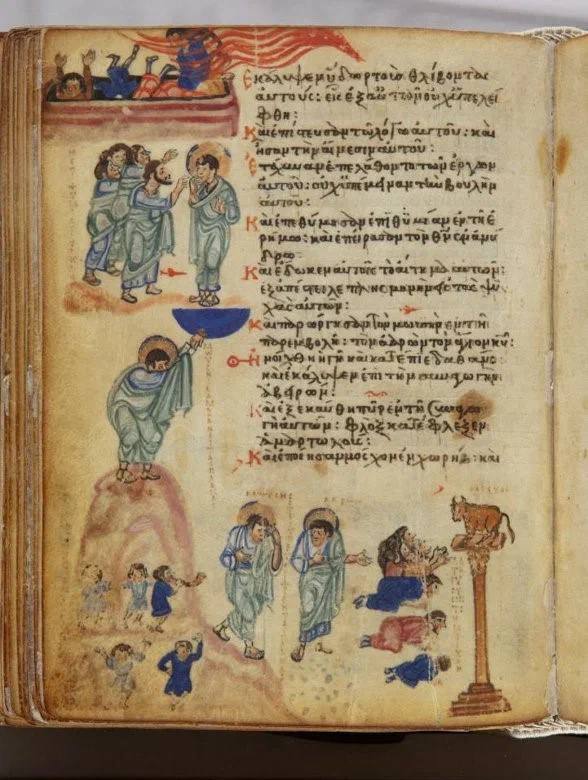 Ἐκάλυψεν ὕδωρ τοὺς θλίβοντας
αὐτούς: εἷς ἐξ αὐτῶν οὐχ ὑπελεί
φθη:
Καὶ ἐπίστευσαν τῶ λόγω αὐτοῦ: καὶ
ἦσαν τὴν αἴνεσιν αὐτοῦ:
Ἐτάχυναν ἐπελάθοντο τῶν ἔργων
αὐτοῦ: οὐχ ὑπέμειναν τὴν βουλὴν
αὐτοῦ:
Καὶ ἐπεθύμησαν ἐπιθυμίαν ἐν τῆ ἐ
ρήμω: καὶ ἐπείρασαν τὸν θν ἐν ἀνύ
δρω:
Καὶ ἔδωκεν αὐτοῖς τὸ αἴτημα αὐτῶν:
ἐξαπέστειλε πλησμονὴν εἰς τὰς ψυ
χὰς αὐτῶν:
Καὶ παρώργισαν τὸν μωυσῆν ἐν τῆ
παρεμβολῆ: τὸν ἀαρὼν τὸν ἅγιον κυ:
Ἠνοίχθη ἡ γῆ καὶ κατέπιε δαθάν:
καὶ ἐκάλυψεν ἐπὶ τὴν συναγωγὴν
ἀβειρών:
Καὶ ἐξεκαύθη πῦρ ἐν τῆ συναγω
γῆ αὐτῶν: φλὸξ κατέφλεξεν
ἁμαρτωλούς:
Καὶ ἐποίησαν μόσχον ἐν χωρήβ: καὶ